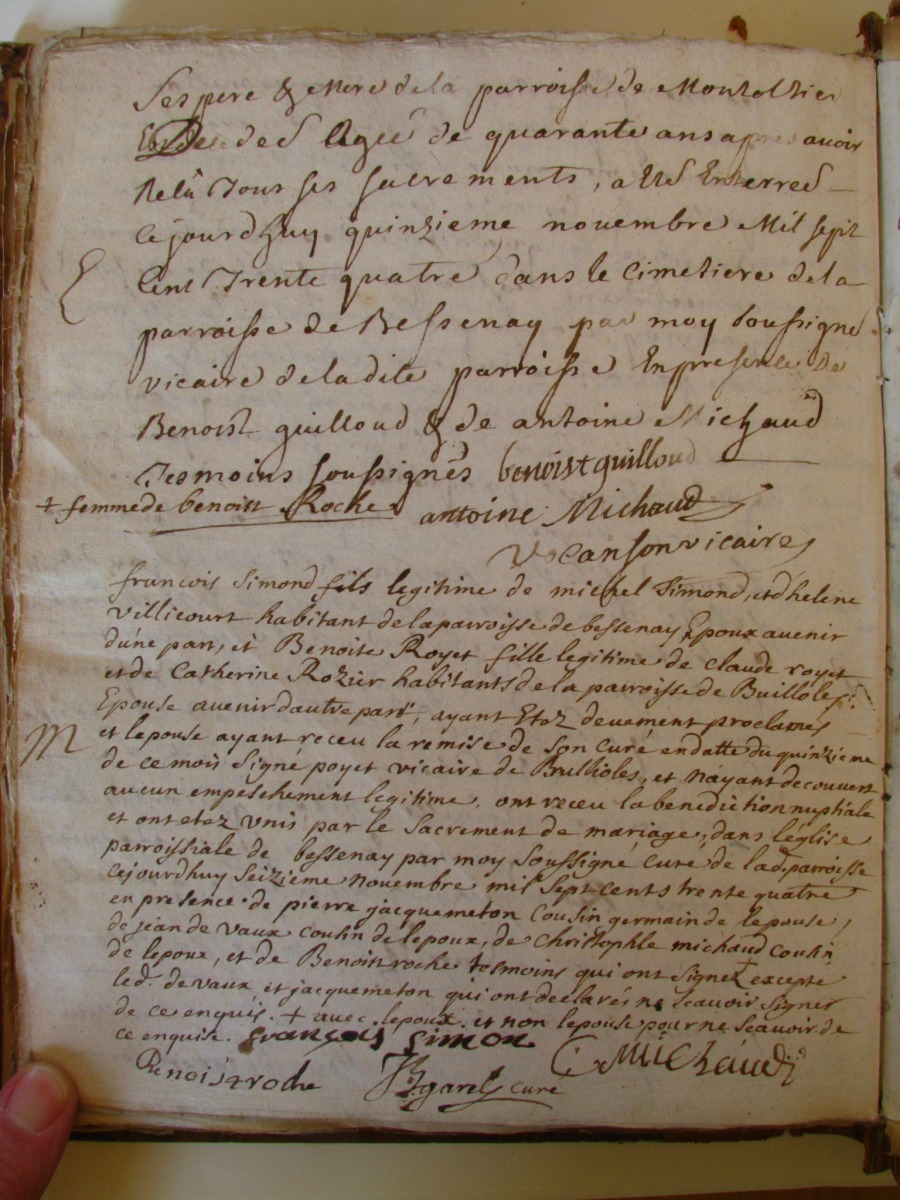 Ses pere & Mere de la parroisse de Montoltier
Agée de quarante ans apres avoir
Recû Tous ses sacrements, a Eté Enterreé
cejourdhuy quinzieme novembre Mil sept
Cent Trente quatre dans le Cimetiere de la
parroisse de Bessenay par moy soussigné
vicaire de la dite parroisse En presence de
Benoist guilloud & de antoine Michaud
Tesmoins soussignés benoist guilloud
+ femme de benoist Roche antoine Michaud
Vocanson vicaire
francois Simond fils legitime de michel Simond, et d'helene
villicourt habitant de la parroisse de bessenay Epoux avenir
d'une part, et Benoite Royet fille legitime de claude royet
et de Catherine Rozier habitants de la parroisse de Bullioles
Epouse avenir dautre part, ayant Etez deuement proclamés
M et lepouse ayant receu la remise de Son Curé en datte du quinzieme
de ce mois Signé poyet vicaire de Brullioles, et n'ayant decouvert
aucun empeschement legitime, ont receu la benediction nuptiale
et ont etez unis par le Sacrement de mariage, dans l'église
parroissiale de bessenay par moy Soussigné Curé de lad. parroisse
cejourdhuy Seizieme novembre mil Sept cents trente quatre
en presence de pierre jacquemeton Cousin germain de lepouse,
de jean de vaux cousin de lepoux, de christophle michaud cousin
de lepoux, et de Benoist roche tesmoins qui ont signez + excepté
led. de vaux et jacquemeton qui ont declarés ne Scavoir signer
de ce enquis. + avec lepoux et non lepouse pour ne Scavoir de
ce enquise. françois simon C Michaud
Benoist roche Bgarel curé